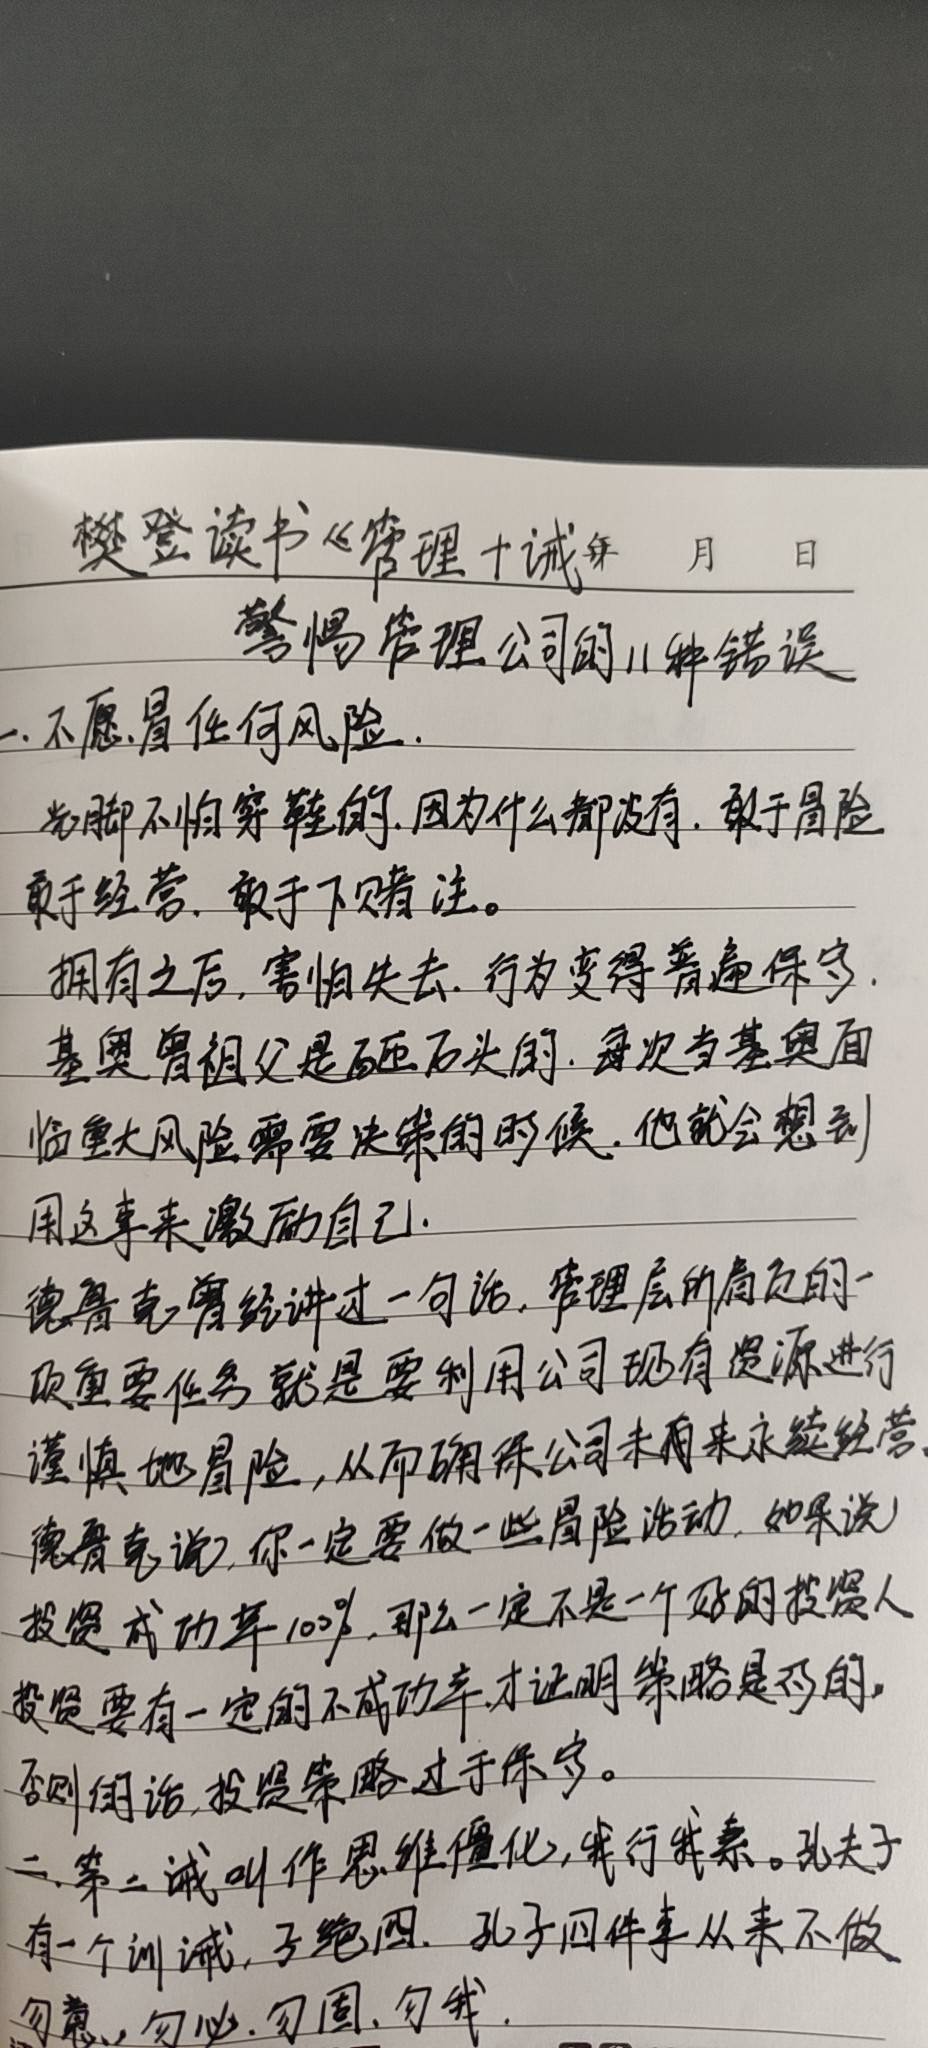 樊登读书《管理十诫年 月 日
警惕管理公司的11种错误
一.不愿冒任何风险.
光脚不怕穿鞋的.因为什么都没有.敢于冒险
敢于经营.敢于下赌注。
拥有之后,害怕失去.行为变得普遍保守.
基奥曾祖父是砸石头的.每次当基奥面
临重大风险需要决策的时候.他就会想到
用这事来激励自己.
德鲁克曾经讲过一句话,管理层所肩负的一
项重要任务就是要利用公司现有资源进行
谨慎地冒险,从而确保公司未有来永续经营.
德鲁克说,你一定要做一些冒险活动.如果说
投资成功率100%,那么一定不是一个好的投资人
投资要有一定的不成功率,才证明策略是对的.
否则的话,投资策略过于保守。
二.第二诫叫作思维僵化,我行我素。孔夫子
有一个训诫,子绝四.孔子四件事从来不做
勿意、勿必.勿固、勿我.